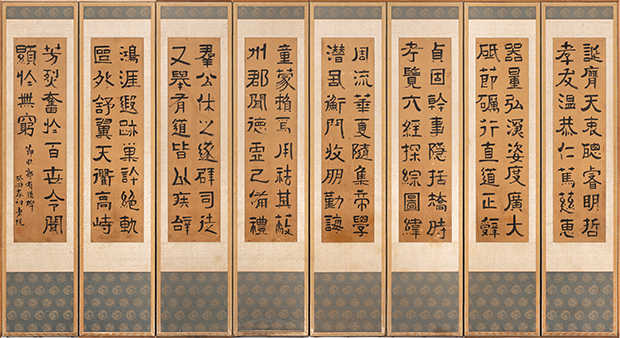 誕膺天衷聰睿明哲
孝友溫恭仁篤慈惠
器量弘深姿度廣大
砥節礪行直道正辭
貞固幹事隱括矯時
考覽六經探綜圖緯
周流華夏隨集帝學
潛居衡門收朋勤誨
童蒙賴焉用祛其蔽
州郡聞德虛己備禮
羣公休之遂辟司徒
又舉有道皆以疾辭
鴻涯遐跡巢許絕軌
區外舒翼天衢高峙
芳烈奮於百世令聞
顯於無窮
節於郭有道碑